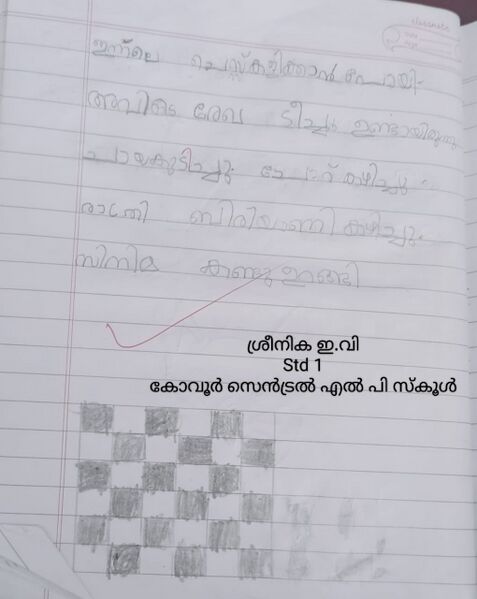 classmate
Date
Page
ഇന്നലെ ചെസ്സ് കളിക്കാൻ പോയി.
അവിടെ രേഖ ടീച്ചർ ഉണ്ടായിരുന്നു
ചായകുടിച്ചു ചോറ് കഴിച്ചു
രാത്രി ബിരിയാണി കഴിച്ചു.
സിനിമ കണ്ടു ഉറങ്ങി
ശ്രീനിക ഇ.വി
Std 1
കോവൂർ സെൻട്രൽ എൽ പി സ്കൂൾ